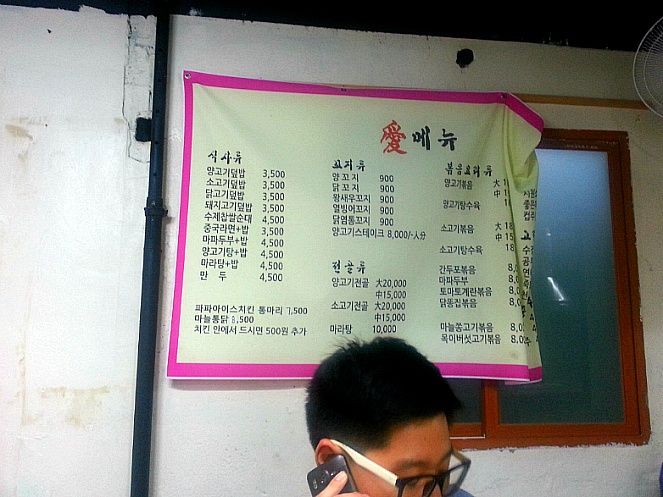 愛메뉴
식사류
양고기덮밥 3,500
소고기덮밥 3,500
닭고기덮밥 3,500
돼지고기덮밥 3,500
수제찹쌀순대 4,500
중국라면+밥 3,500
마파두부+밥 4,500
양고기탕+밥 4,500
마라탕+밥 4,500
만두 4,500
파파아이스치킨 통마리 7,500
마늘통닭 8,500
치킨 안에서 드시면 500원 추가
꼬지류
양꼬지 900
닭꼬지 900
왕새우꼬지 900
열빙어꼬지 900
닭염통꼬지 900
양고기스테이크 8,000/-人分
전골류
양고기전골 大20,000
中15,000
소고기전골 大20,000
中15,000
마라탕 10,000
볶음요리류
양고기볶음 大
中
양고기탕수육
소고기볶음 大 18
中 15
소고기탕수육
간두포볶음 8,0
마파두부 8,0
토마토계란볶음 8,0
닭똥집볶음 8,0
마늘쫑고기볶음 8,0
목이버섯고기볶음 8,0